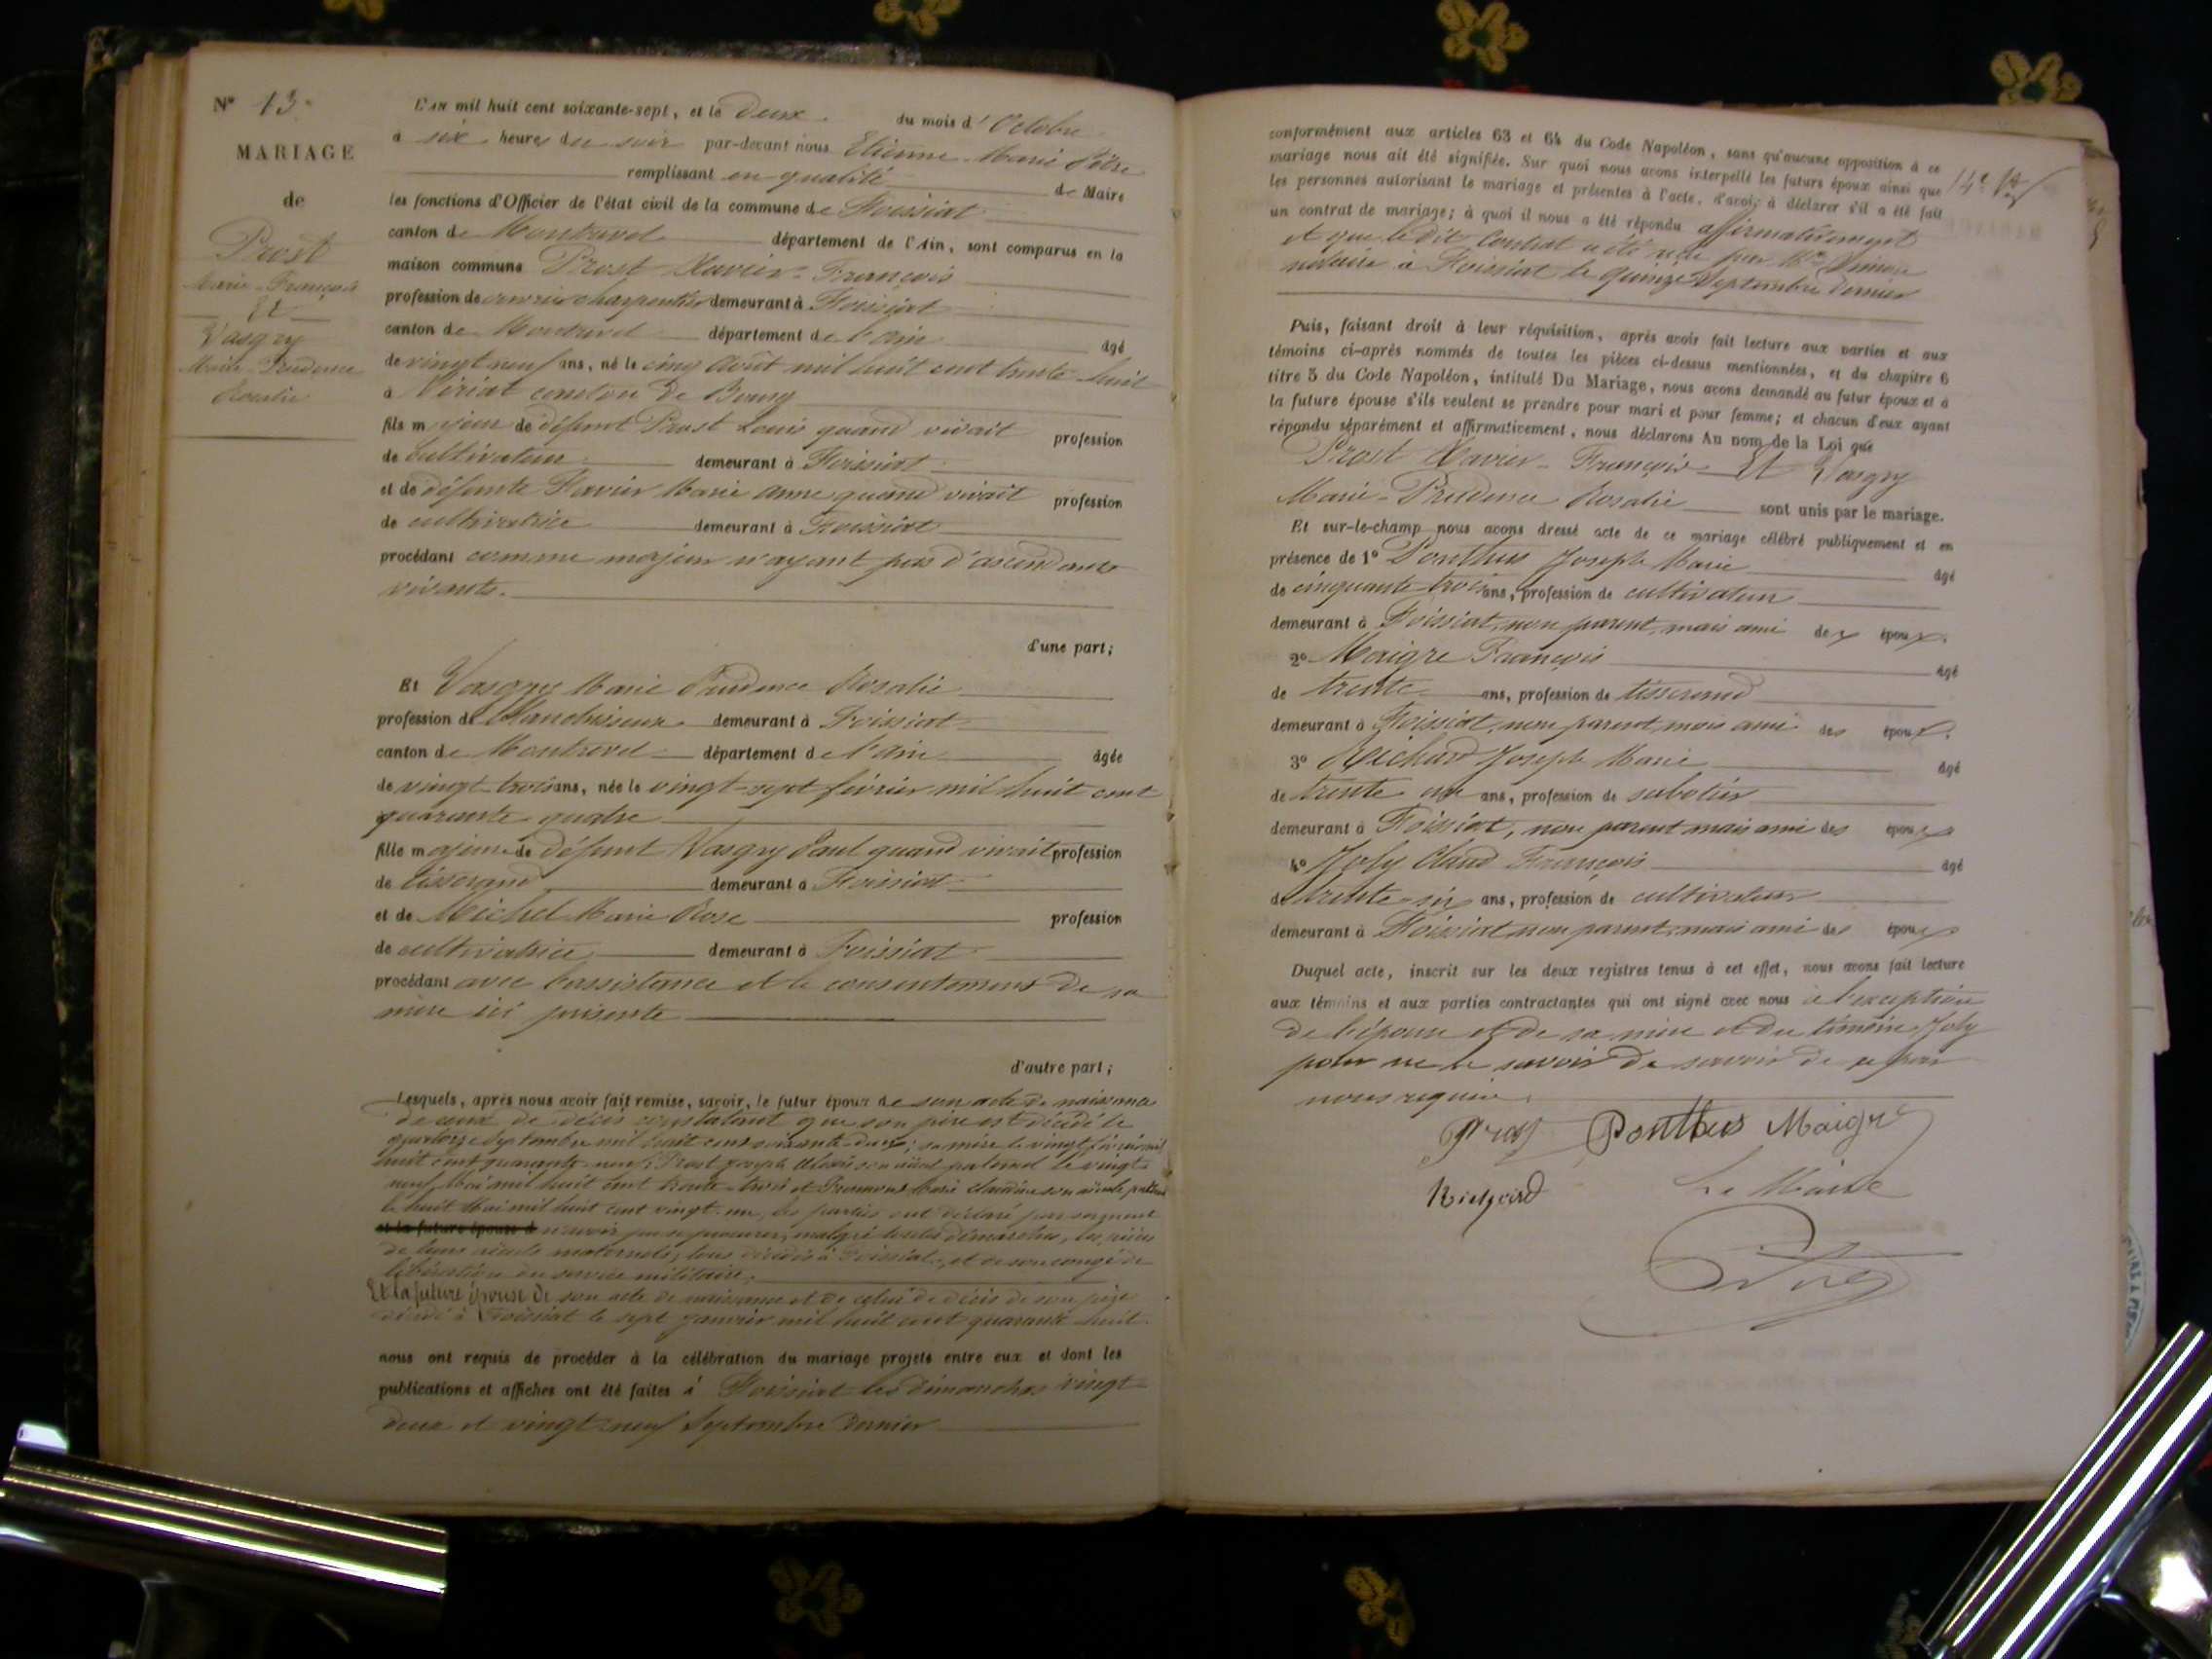 N° 13.
MARIAGE
de
Prost
Xavier-François
Et
Vasgry
Marie-Prudence
Rosalie
L'AN mil huit cent soixante-sept, et le deux du mois d'Octobre
à six heures du soir par-devant nous Etienne Marie
remplissant en qualité de Maire
les fonctions d'Officier de l'état civil de la commune de Foissiat
canton de Montrevel département de l'Ain, sont comparus en la
maison commune Prost Xavier-François
profession de ouvrier charpentier demeurant à Foissiat
canton de Montrevel département de l'ain âgé
de vingt neuf ans, né le cinq Août mil huit cent trente huit
à Viriat canton de Bourg
fils majeur de défunt Prost Louis quand vivait profession
de cultivateur demeurant à Foissiat
et de défunte Favier Marie Anne quand vivait profession
de cultivatrice demeurant à Foissiat
procédant comme majeur n'ayant pas d'ascendants
vivants.
d'une part;
Et Vasgry Marie Prudence Rosalie
profession de Blanchisseuse demeurant à Foissiat
canton de Montrevel département de l'ain âgée
de vingt trois ans, née le vingt-sept février mil huit cent
quarante quatre
fille majeure de défunt Vasgry Paul quand vivait profession
de tisserand demeurant à Foissiat
et de Michel Marie Rose profession
de cultivatrice demeurant à Foissiat
procédant avec l'assistance et le consentement de sa
mère ici présente
d'autre part;
Lesquels, après nous avoir fait remise, savoir, le futur époux de son acte de naissance
de ceux de décès constatant que son père est décédé le
quatorze septembre mil huit cent soixante deux; sa mère le vingt février mil
huit cent quarante neuf; Prost Joseph son aïeul paternel le vingt
neuf Mai mil huit cent trente trois et Marie Claudine son aïeule paternelle
le huit Mai mil huit cent vingt-un, les parties ont déclaré par serment
et la future épouse d n'avoir pu se procurer, malgré toutes démarches, les
de leurs aïeuls maternels, tous décédés à Foissiat, et de son congé de
libération du service militaire.
Et la future épouse de son acte de naissance et de celui de décès de son père
décédé à Foissiat le sept janvier mil huit cent quarante huit.
nous ont requis de procéder à la célébration du mariage projeté entre eux et dont les
publications et affiches ont été faites à Foissiat les dimanches vingt
deux et vingt-neuf Septembre dernier
14e
conformément aux articles 63 et 64 du Code Napoléon, sans qu'aucune opposition à ce
mariage nous ait été signifiée. Sur quoi nous avons interpellé les futurs époux ainsi que
les personnes autorisant le mariage et présentes à l'acte, d'avoir à déclarer s'il a été fait
un contrat de mariage; à quoi il nous a été répondu affirmativement
et que le dit Contrat a été reçu par Me
notaire à Foissiat le quinze Septembre dernier
Puis, faisant droit à leur réquisition, après avoir fait lecture aux parties et aux
témoins ci-après nommés de toutes les pièces ci-dessus mentionnées, et du chapitre 6
titre 5 du Code Napoléon, intitulé Du Mariage, nous avons demandé au futur époux et à
la future épouse s'ils veulent se prendre pour mari et pour femme; et chacun d'eux ayant
répondu séparément et affirmativement, nous déclarons Au nom de la Loi que
Prost Xavier-François Et Vasgry
Marie-Prudence Rosalie sont unis par le mariage.
Et sur-le-champ nous avons dressé acte de ce mariage célébré publiquement et en
présence de 1° Ponthus Joseph Marie âgé
de cinquante-trois ans, profession de cultivateur
demeurant à Foissiat, non parent, mais ami des époux.
2° Maigre François âgé
de trente ans, profession de tisserand
demeurant à Foissiat, non parent, mais ami des époux.
3° Richard Joseph Marie âgé
de trente un ans, profession de sabotier
demeurant à Foissiat, non parent mais ami des époux
4° Joly Claud François âgé
de trente-six ans, profession de cultivateur
demeurant à Foissiat non parent, mais ami des époux
Duquel acte, inscrit sur les deux registres tenus à cet effet, nous avons fait lecture
aux témoins et aux parties contractantes qui ont signé avec nous à l'exception
de l'épouse et de sa mère et du témoin Joly
pour ne le savoir de ce par
nous requis.
Prost Ponthus Maigre
Richard Le Maire